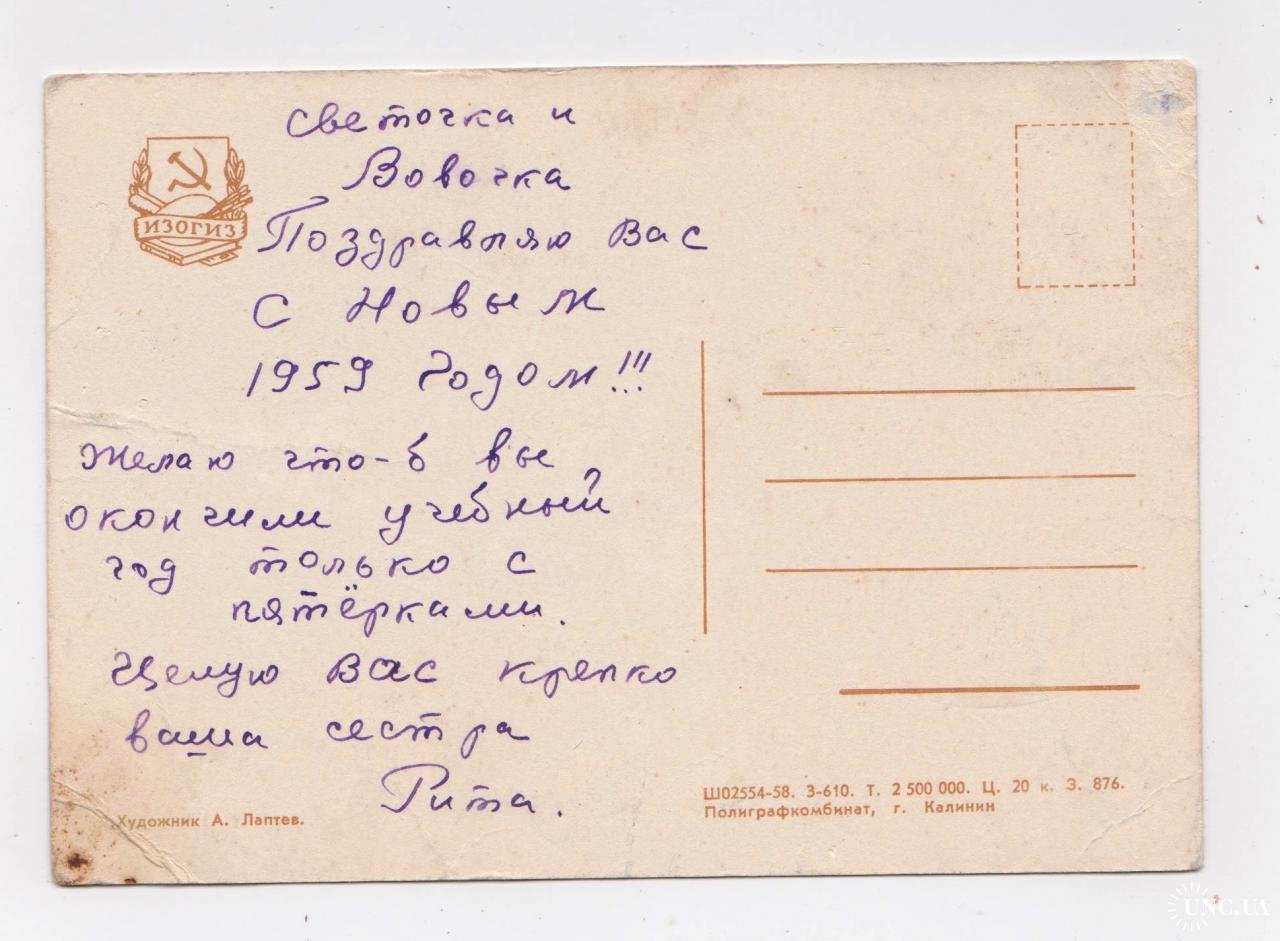 Светочка и
Вовочка
Поздравляю Вас
С Новым
1959 Годом!!!
Желаю что-б вы
окончили учебный
год только с
пятёрками.
Целую Вас крепко
ваша сестра
Рита.
ИЗОГИЗ
Художник А. Лаптев.
Ш02554-58. З-610. Т. 2 500 000. Ц. 20 к. З. 876.
Полиграфкомбинат, г. Калинин
UNC.UA